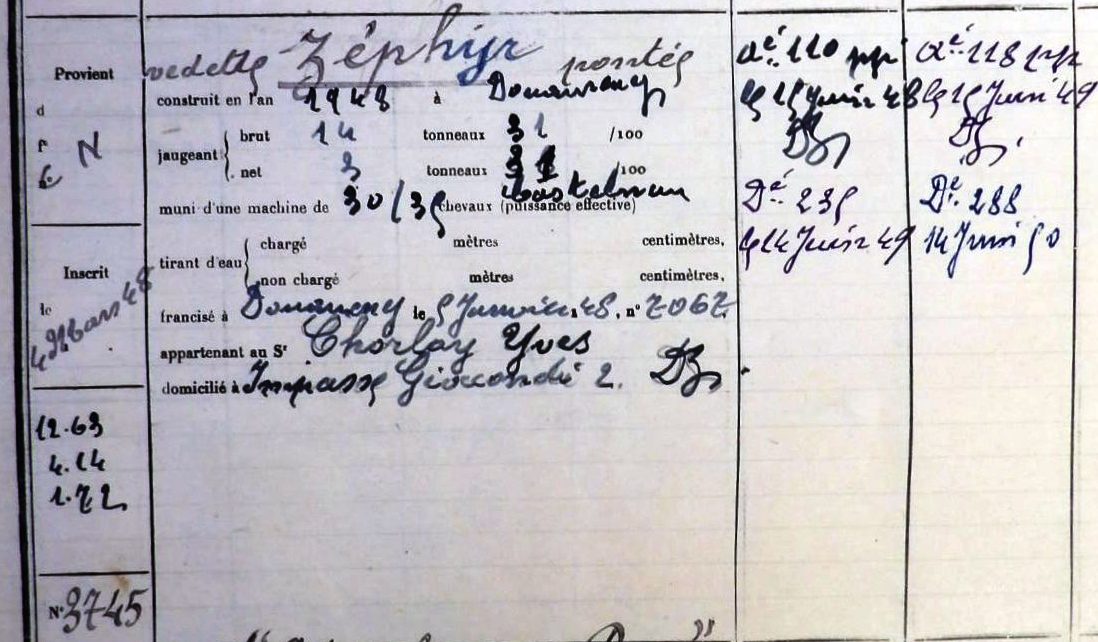 Provient
d
N
Inscrit
le
4 Mars 48
12.63
4.14
1.72
N° 3745
vedette Zéphyr pontée
construit en l'an 1948 à Douarnenez
jaugeant { brut 14 tonneaux 31 /100
net 3 tonneaux 31 /100
muni d'une machine de 30/35 chevaux (puissance effective)
tirant d'eau { chargé mètres centimètres,
non chargé mètres centimètres,
francisé à Douarnenez le 5 Janvier 48, n° 7067
appartenant au Sr Chorlay Yves
domicilié à Impasse Gioconde 2.
Dé 110
le 15 Juin 48
Dé 235
le 14 Juin 49
Dé 118
le 15 Juin 49
Dé 288
14 Juin 50